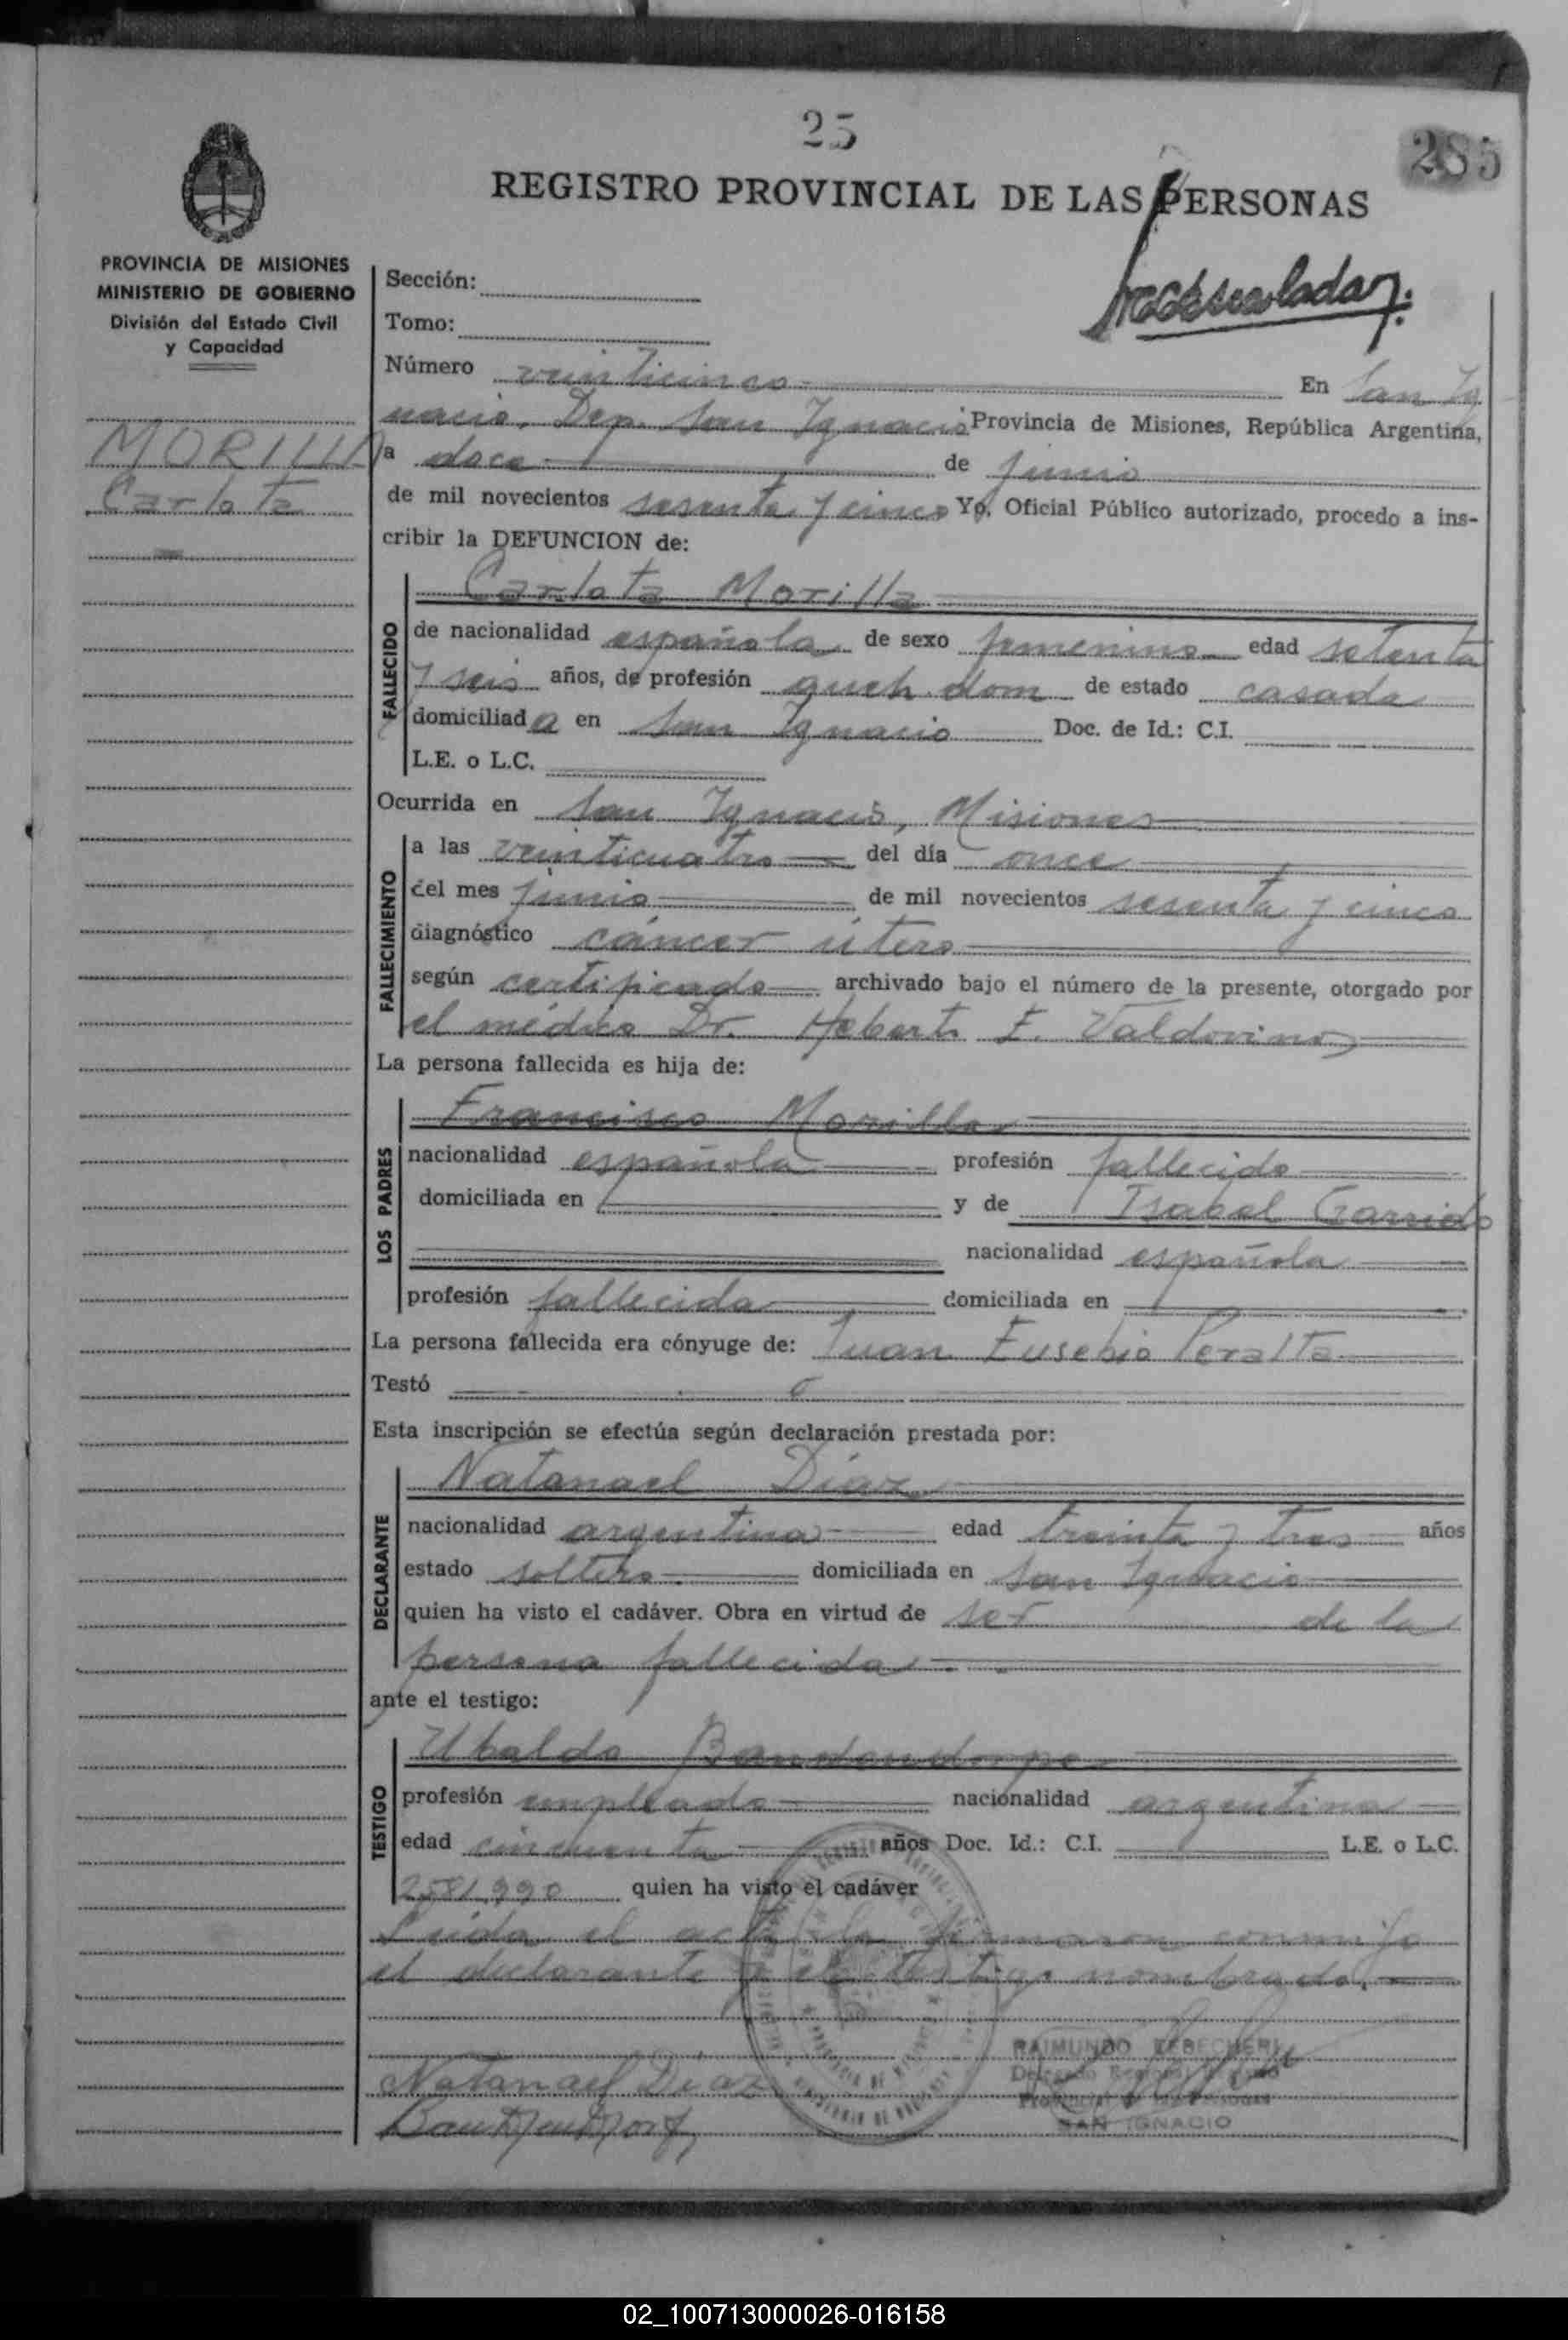 25
285
REGISTRO PROVINCIAL DE LAS PERSONAS
PROVINCIA DE MISIONES
MINISTERIO DE GOBIERNO
División del Estado Civil
y Capacidad
MORILLA
Carlota
Sección:
Tomo:
Número veinticinco En San Ig
nacio, Dep. San Ignacio Provincia de Misiones, República Argentina,
a doce de junio
de mil novecientos sesenta y cinco Yo, Oficial Público autorizado, procedo a ins-
cribir la DEFUNCION de:
Carlota Morilla
FALLECIDO
de nacionalidad española de sexo femenino edad setenta
y seis años, de profesión queh. dom de estado casada
domiciliada en San Ignacio Doc. de Id.: C.I.
L.E. o L.C.
Ocurrida en San Ignacio, Misiones
FALLECIMIENTO
a las veinticuatro del día once
del mes junio de mil novecientos sesenta y cinco
diagnóstico cáncer útero
según certificado archivado bajo el número de la presente, otorgado por
el médico Dr. Heberto E. Valdovinos
La persona fallecida es hija de:
LOS PADRES
Francisco Morilla
nacionalidad española profesión fallecido
domiciliada en y de Isabel Garrido
nacionalidad española
profesión fallecida domiciliada en
La persona fallecida era cónyuge de: Juan Eusebio Peralta
Testó
Esta inscripción se efectúa según declaración prestada por:
DECLARANTE
Natanael Díaz
nacionalidad argentina edad treinta y tres años
estado soltero domiciliada en San Ignacio
quien ha visto el cadáver. Obra en virtud de ser de la
persona fallecida
ante el testigo:
TESTIGO
Ubaldo
profesión empleado nacionalidad argentina
edad cincuenta años Doc. Id.: C.I. L.E. o L.C.
2581.990 quien ha visto el cadáver
Leída el acta la firmaron conmigo
el declarante y el testigo nombrado.
RAIMUNDO
Natanael Díaz
SAN IGNACIO
02_100713000026-016158